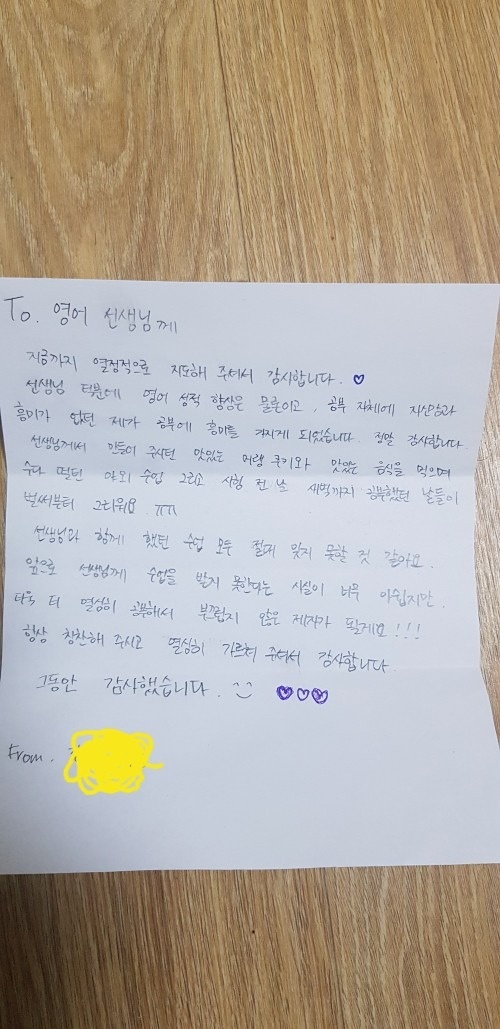 To. 영어 선생님께
지금까지 열정적으로 지도해 주셔서 감사합니다. ♡
선생님 덕분에 영어 성적 향상은 물론이고, 공부 자체에 자신감과
흥미가 없던 제가 공부에 흥미를 가지게 되었습니다. 정말 감사합니다.
선생님께서 만들어 주시던 맛있는 머랭 쿠키와 맛있는 음식을 먹으며
수다 떨던 야외 수업 그리고 시험 전 날 새벽까지 공부했던 날들이
벌써부터 그리워요 ㅠㅠ
선생님과 함께 했던 수업 모두 절대 잊지 못할 것 같아요.
앞으로 선생님께 수업을 받지 못한다는 사실이 너무 아쉽지만,
더 열심히 공부해서 부끄럽지 않은 제자가 될게요!!!
항상 칭찬해 주시고 열심히 가르쳐 주셔서 감사합니다
그동안 감사했습니다. :) ♡♡♡
From.